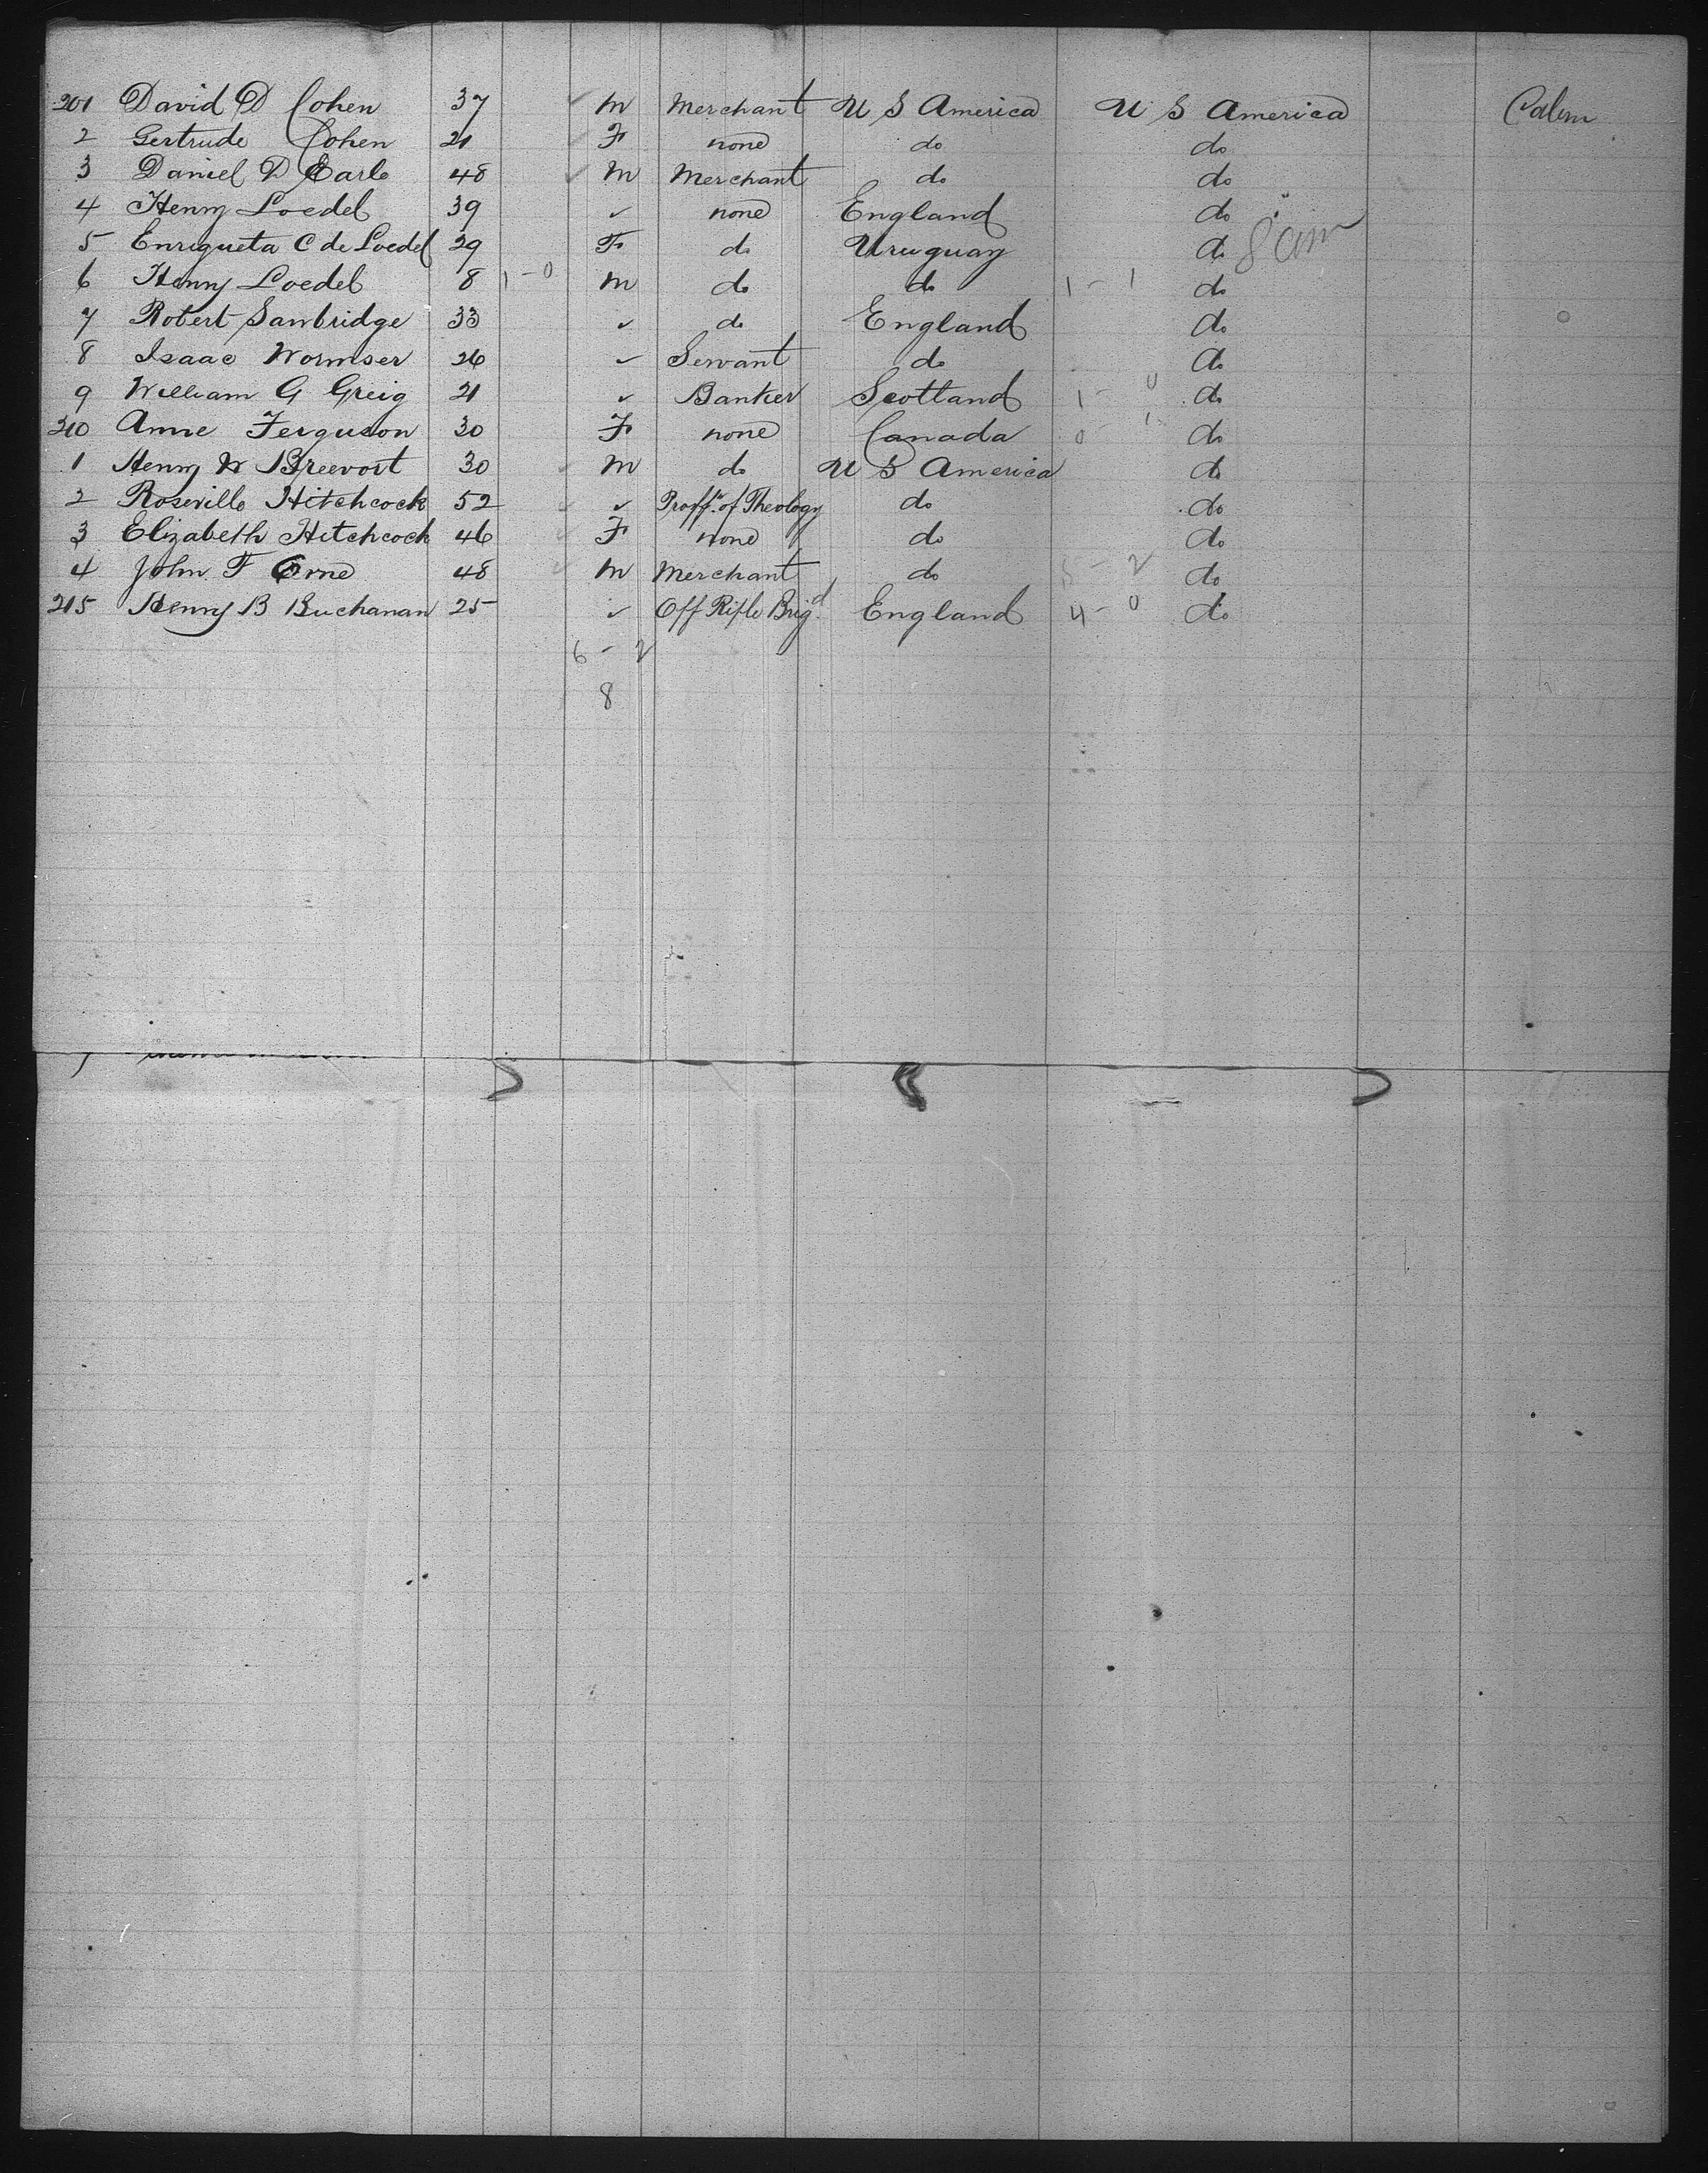 201 David D Cohen 37 ✓ M Merchant U S America U S America Cabin
2 Gertrude Cohen 21 ✓ F none do do
3 Daniel D Earle 48 ✓ M Merchant do do
4 Henry Loedel 39 ✓ none England do
5 Enriqueta C de Loedel 29 F do Uruguay do 8 am
6 Henry Loedel 8 1-0 M do do 1-1 do
7 Robert Sawbridge 33 ✓ do England do
8 Isaac Wormser 26 ✓ Servant do do
9 William G Greig 21 ✓ Banker Scotland 1-0 do
210 Anne Ferguson 30 F none Canada 0-1 do
1 Henry W Breevort 30 ✓ M do U S America do
2 Roseville Hitchcock 52 ✓ ✓ Proffr. of Theology do do
3 Elizabeth Hitchcock 46 ✓ F none do do
4 John F Orne 48 ✓ M Merchant do 5-2 do
215 Henry B Buchanan 25 ✓ Off Rifle Brigd. England 4-0 do
6-2
8